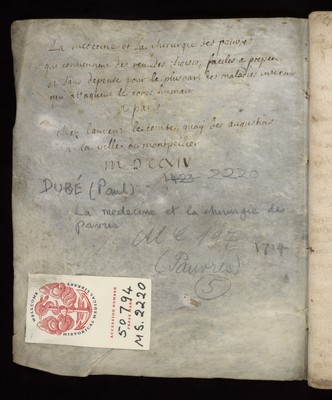 La medecine et la chirurgie des pauvres
qui contiennent des remedes choisis, faciles a preparer
et sans depense pour la pluspart des maladies internes
qui attaquent le corps humain
a paris
chez laurent le comte, quay des augustins
a la ville de montpellier
MDCCXIV
DUBÉ (Paul) - 1423 2220
La medecine et la chirurgie des
pauvres
1714
(Pauvres)
5
WELLCOME
HISTORICAL MEDICAL LIBRARY
ACCESSION NUMBER
50794
PRESS MARK
MS. 2220